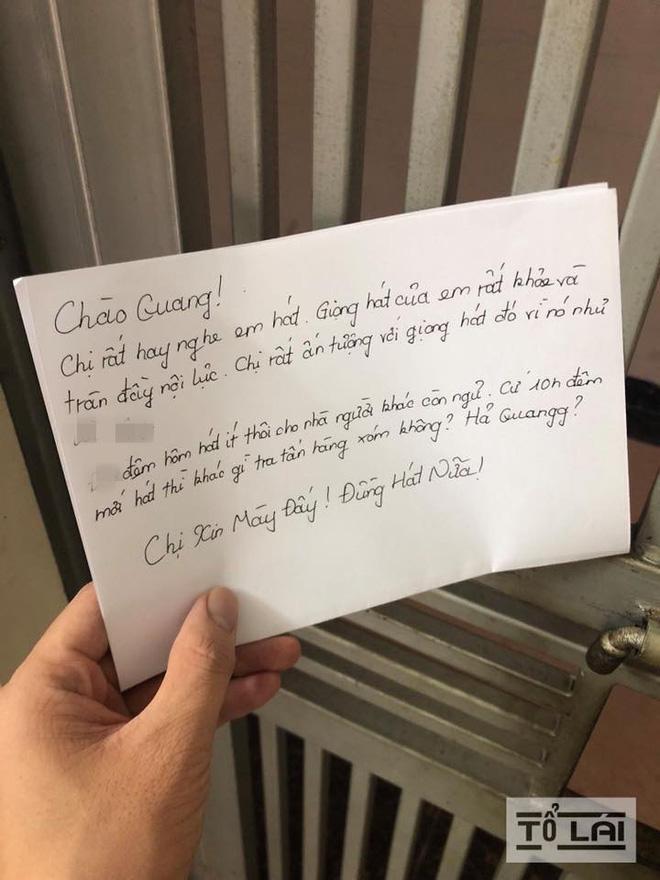 Chào Quang!
Chị rất hay nghe em hát. Giọng hát của em rất khỏe và
tràn đầy nội lực. Chị rất ấn tượng với giọng hát đó vì nó như
đêm hôm hát ít thôi cho nhà người khác còn ngủ. Cứ 10h đêm
mới hát thì khác gì tra tấn hàng xóm không? Hả Quangg?
Chị Xin Mày Đấy! Đừng Hát Nữa!
TỔ LÁI